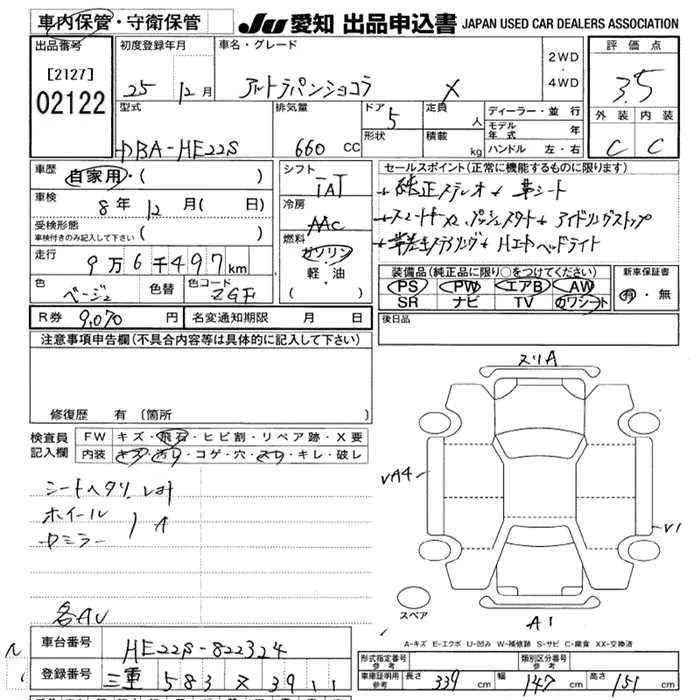 車内保管・守衛保管 JU 愛知 出品申込書 JAPAN USED CAR DEALERS ASSOCIATION
出品番号 初度登録年月 車名・グレード 2WD・4WD 評価点
[2127] 02122 25 年 12 月 アルトラパンショコラ X 3.5
型式 排気量 ドア 5 定員 人 ディーラー・並行 外装 内装
形状 積載 kg モデル年式 年 C C
DBA-HE22S 660 CC ハンドル 左・右
車歴 自家用・( ) シフト セールスポイント(正常に機能するものに限ります)
車検 8年 12月 ( 日) IAT +純正ステレオ +革シート
受検形態 冷房 AAC +スマートキーx2 プッシュスタート +アイドリングストップ
車検付きのみ記入して下さい ( )
走行 9万6千497km 燃料 ガソリン・軽・油 +革巻ステアリング +HIDヘッドライト
色 ベージュ 色替 色コード ZGF 装備品(純正品に限り○をつけてください) 新車保証書
PS PW エアB AW 有・無
SR ナビ TV カワシート
R券 9,070 円 名変通知期限 月 日 後日品
注意事項申告欄(不具合内容等は具体的に記入して下さい)
修復歴 有 〔箇所
検査員記入欄 FW キズ・飛石・ヒビ割・リペア跡・X要
内装 キズ・汚リ・コゲ・穴・スリ・キレ・破レ
スリA
シートヘタリ
VA4
ホイール
V1
ドアミラー
A
スペア
各AU
A1
A-キズ E-エクボ U-凹み W-補修跡 S-サビ C-腐食 XX-交換済
車台番号 HE22S-822324
形式指定番号 参考 類別区分番号 参考
登録番号 三重 583
車庫証明用 参考 長さ 339 cm 幅 147 cm 高さ 151 cm